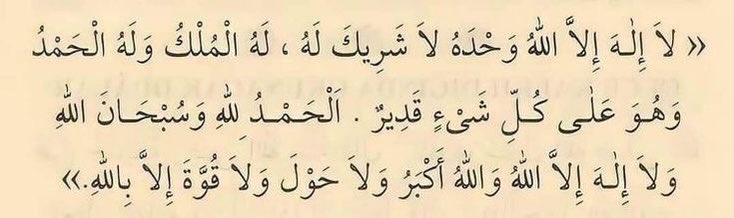 « لاَ إِلٰـهَ إِلاَّ اللهُ وَحْدَهُ لاَ شَرِيكَ لَهُ ، لَهُ الْمُلْكُ وَلَهُ الْحَمْدُ
وَهُـوَ عَلٰـى كُـلِّ شَىْءٍ قَدِيرٌ . اَلْحَـمْـدُ لِلهِ وَسُبْحَـانَ اللهِ
وَلاَ إِلٰـهَ إِلاَّ اللهُ وَاللهُ أَكْبَرُ وَلاَ حَوْلَ وَلاَ قُوَّةَ إِلاَّ بِاللهِ.»